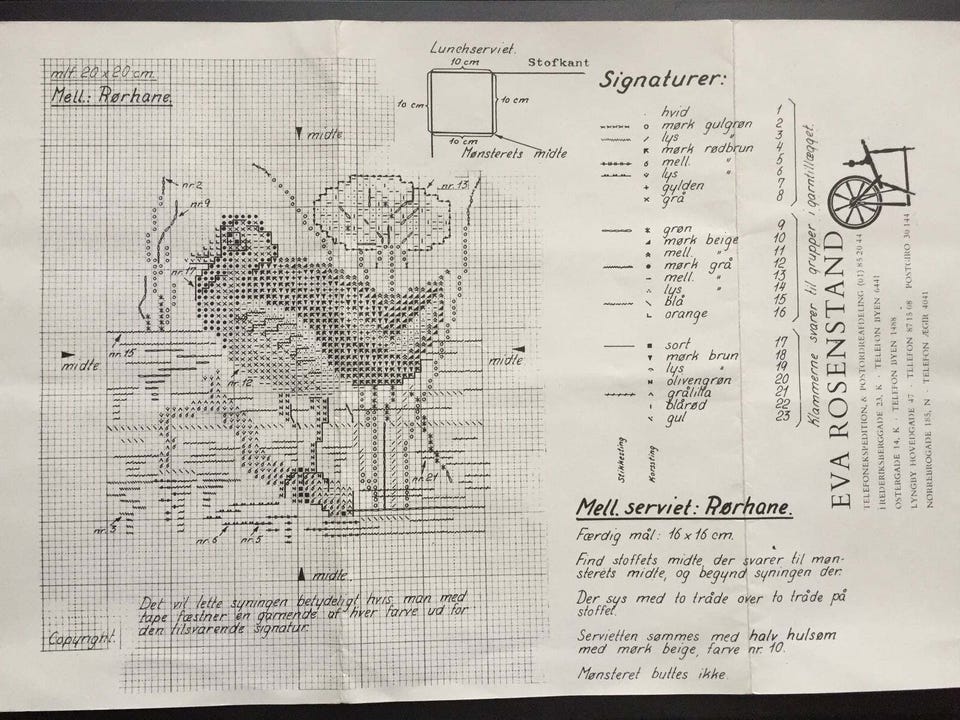 mlf. 20 x 20 cm.
Mell.: Rørhane.
midte
nr. 2
nr. 9
nr. 17
nr. 13
midte
nr. 15
nr. 12
midte
nr. 21
nr. 3
nr. 6
nr. 5
midte.
Det vil lette syningen betydeligt hvis man med
tape fæstner en garnende af hver farve ud for
den tilsvarende signatur.
Copyright.
Lunchserviet.
10 cm
Stofkant
10 cm
10 cm
10 cm
Mønsterets midte
Signaturer:
hvid 1
mørk gulgrøn 2
lys " 3
mørk rødbrun 4
mell. " 5
lys " 6
gylden 7
grå 8
grøn 9
mørk beige 10
mell. " 11
mørk grå 12
mell. " 13
lys " 14
blå 15
orange 16
sort 17
mørk brun 18
lys " 19
olivengrøn 20
grålilla 21
blårød 22
gul 23
Stikkesting
Korssting
Klammerne svarer til grupper i garntillægget.
Mell. serviet: Rørhane.
Færdig mål: 16 x 16 cm.
Find stoffets midte, der svarer til møn-
sterets midte, og begynd syningen der.
Der sys med to tråde over to tråde på
stoffet.
Servietten sømmes med halv hulsøm
med mørk beige, farve nr. 10.
Mønsteret buttes ikke.
EVA ROSENSTAND
TELEFONEKSPEDITION, & POSTORDREAFDELING (01) 85 20 44
FREDERIKSBERGGADE 23, K · TELEFON BYEN 6441
OSTERGADE 14, K · TELEFON BYEN 1488
LYNGBY HOVEDGADE 47 · TELEFON 87 15 08 POSTGIRO 30 144
NORREBROGADE 185, N · TELEFON ÆGIR 4041